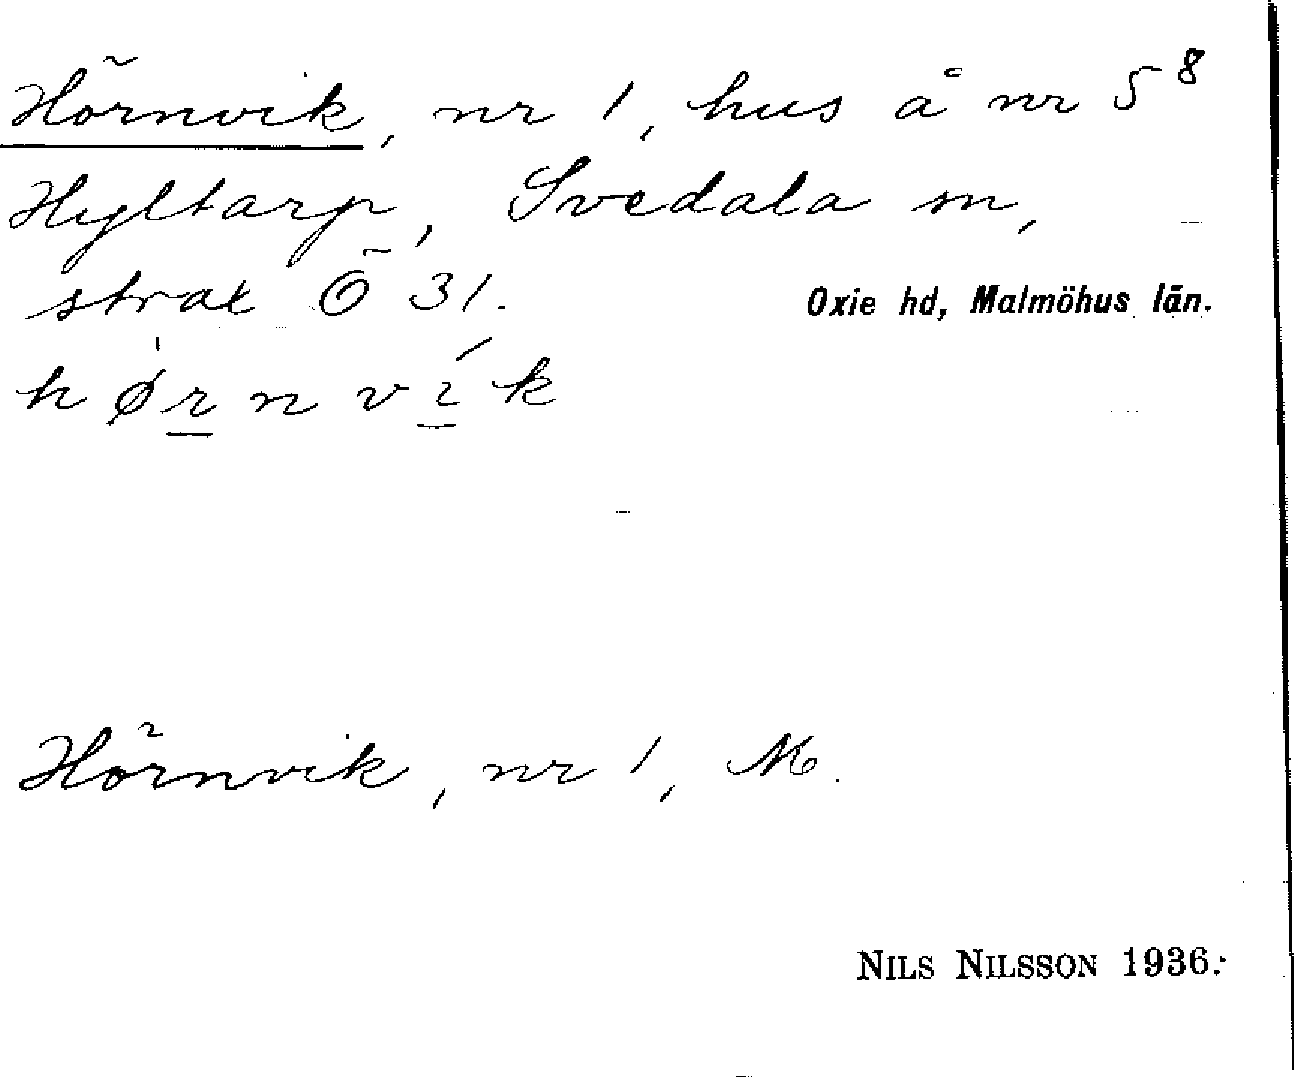 Hörnvik, nr 1, hus å nr 5⁸
Hyltarp, Svedala sn,
strax Ö 31.
Oxie hd, Malmöhus län.
hø̍rnvík
Hörnvik, nr 1, M.
NILS NILSSON 1936.